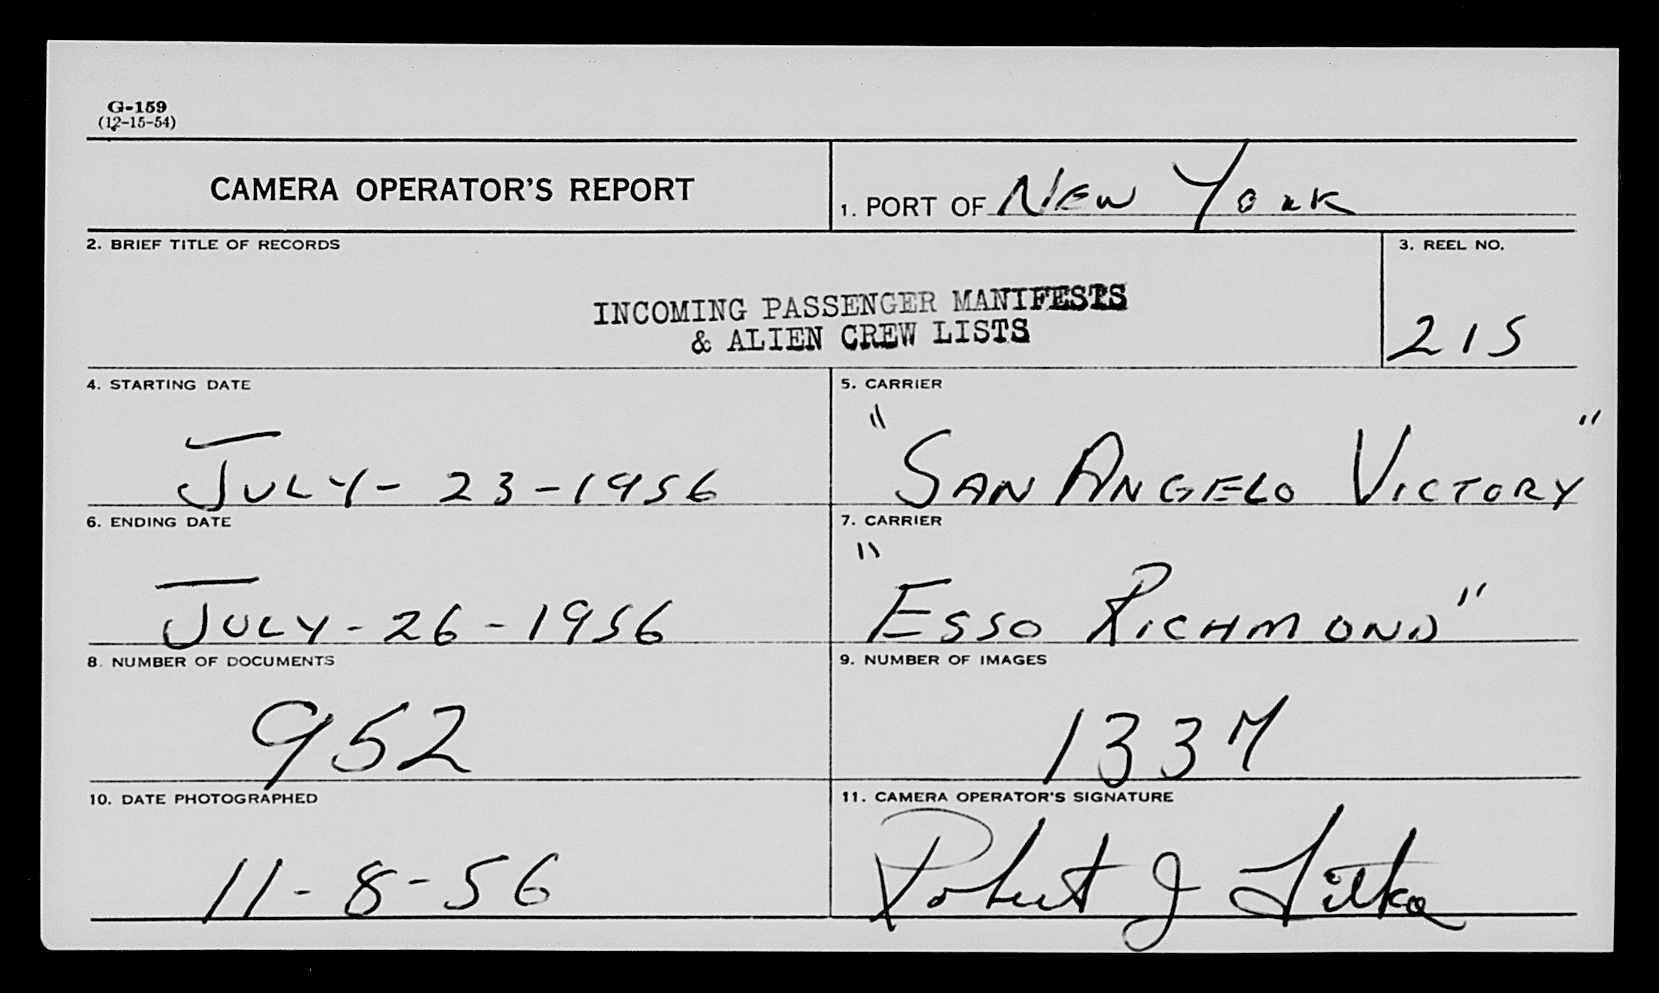 G-159
(12-15-54)
CAMERA OPERATOR'S REPORT
1. PORT OF NEW YORK
2. BRIEF TITLE OF RECORDS
INCOMING PASSENGER MANIFESTS
& ALIEN CREW LISTS
3. REEL NO.
215
4. STARTING DATE
JULY-23-1956
5. CARRIER
"SAN ANGELO VICTORY"
6. ENDING DATE
JULY-26-1956
7. CARRIER
"ESSO RICHMOND"
8. NUMBER OF DOCUMENTS
952
9. NUMBER OF IMAGES
1337
10. DATE PHOTOGRAPHED
11-8-56
11. CAMERA OPERATOR'S SIGNATURE
Robert J